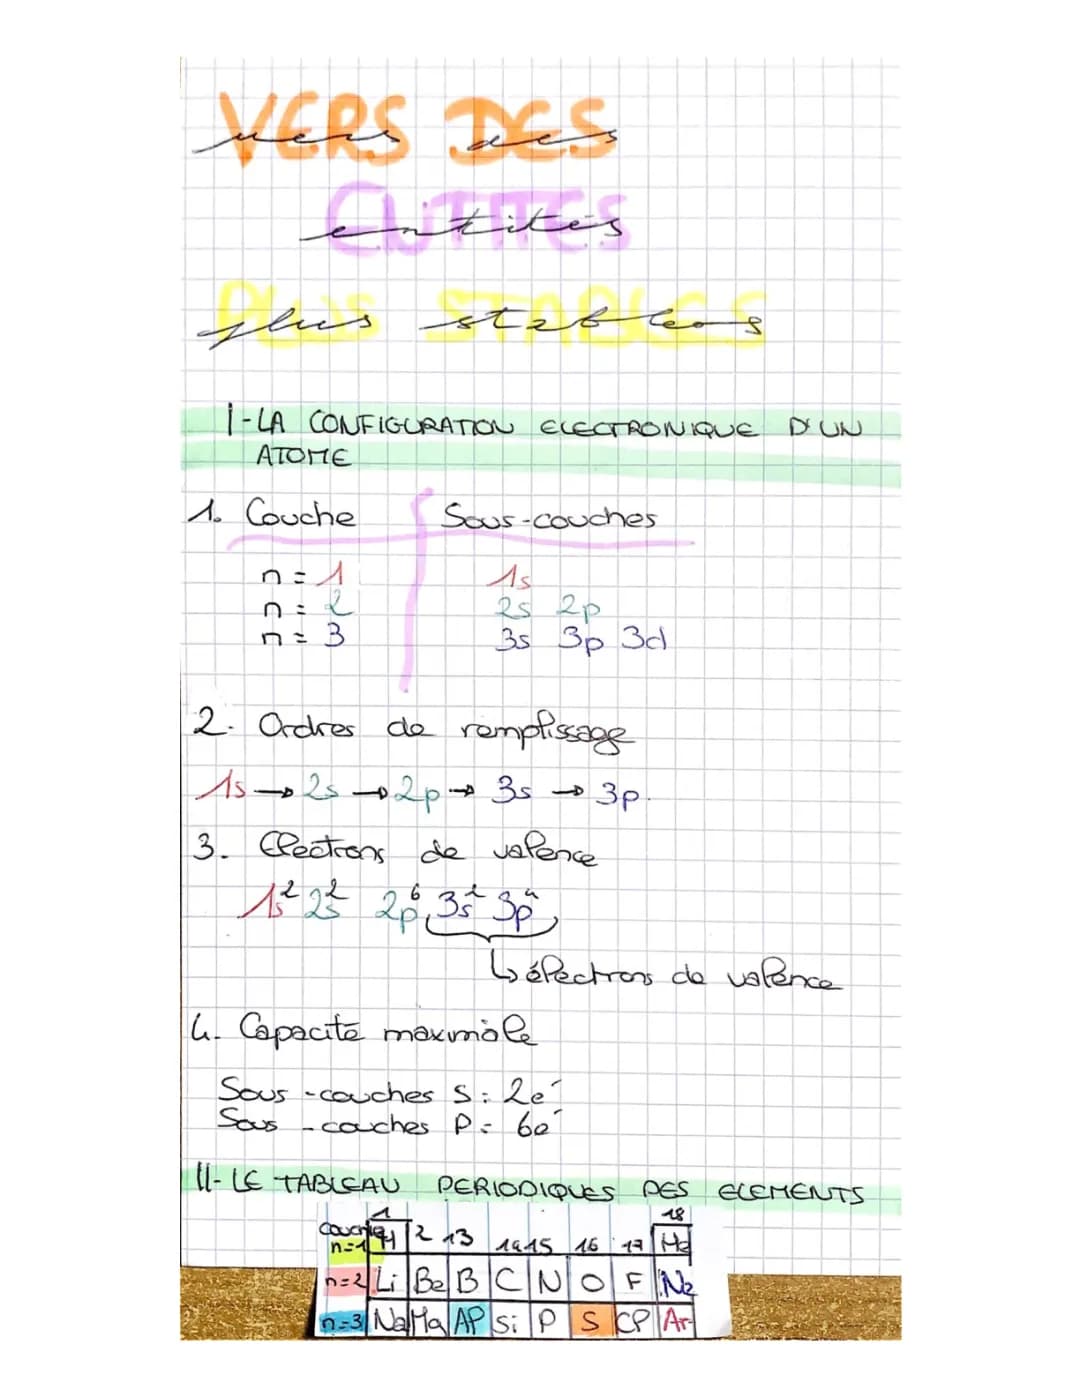 VERS DES
vers des
ENTITES
entités
PLUS STABLES
plus stables
I-LA CONFIGURATION ELECTRONIQUE D'UN
ATOME
1. Couche Sous-couches
n=1 1s
n=2 2s 2p
n=3 3s 3p 3d
2. Ordres de remplissage
1s → 2s → 2p → 3s → 3p.
3. Électrons de valence
1s² 2s² 2p⁶ 3s² 3p⁴
↳ électrons de valence
4. Capacité maximale
Sous-couches S: 2e⁻
Sous-couches P: 6e⁻
II-LE TABLEAU PERIODIQUES DES ELEMENTS
1 18
couche
n=1 H 2 13 14 15 16 17 He
n=2 Li Be B C N O F Ne
n=3 Na Mg Al Si P S Cl Ar